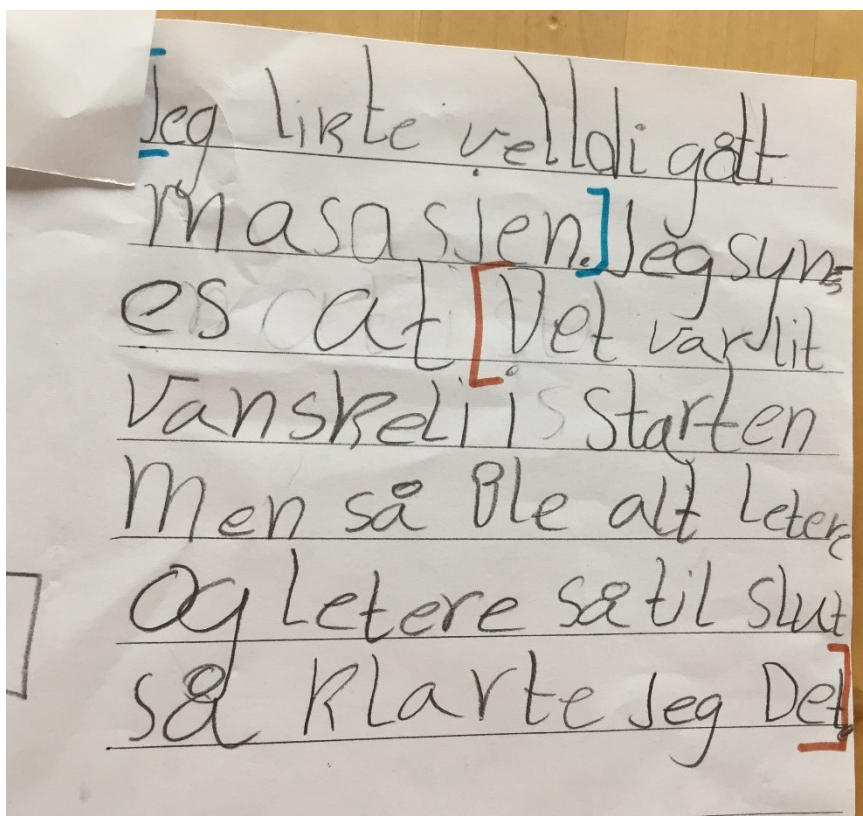 Jeg likte velldi gått
masasjen. Jeg syn-
es at Det var lit
vanskeli i starten
Men så Ble alt Letere
og Letere så til slut
så klarte jeg Det.